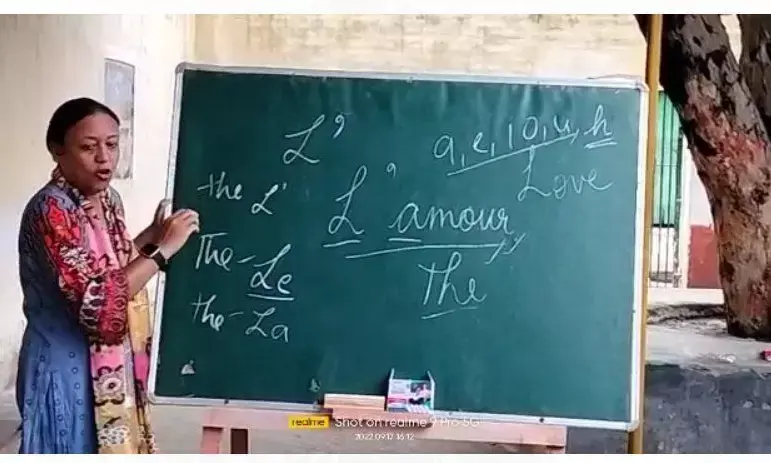 L'
a, e, i o, u, h
Love
the L'
L'amour
The - Le
the
the - La
realme Shot on realme 9 Pro 5G
2022.09.12 16:12